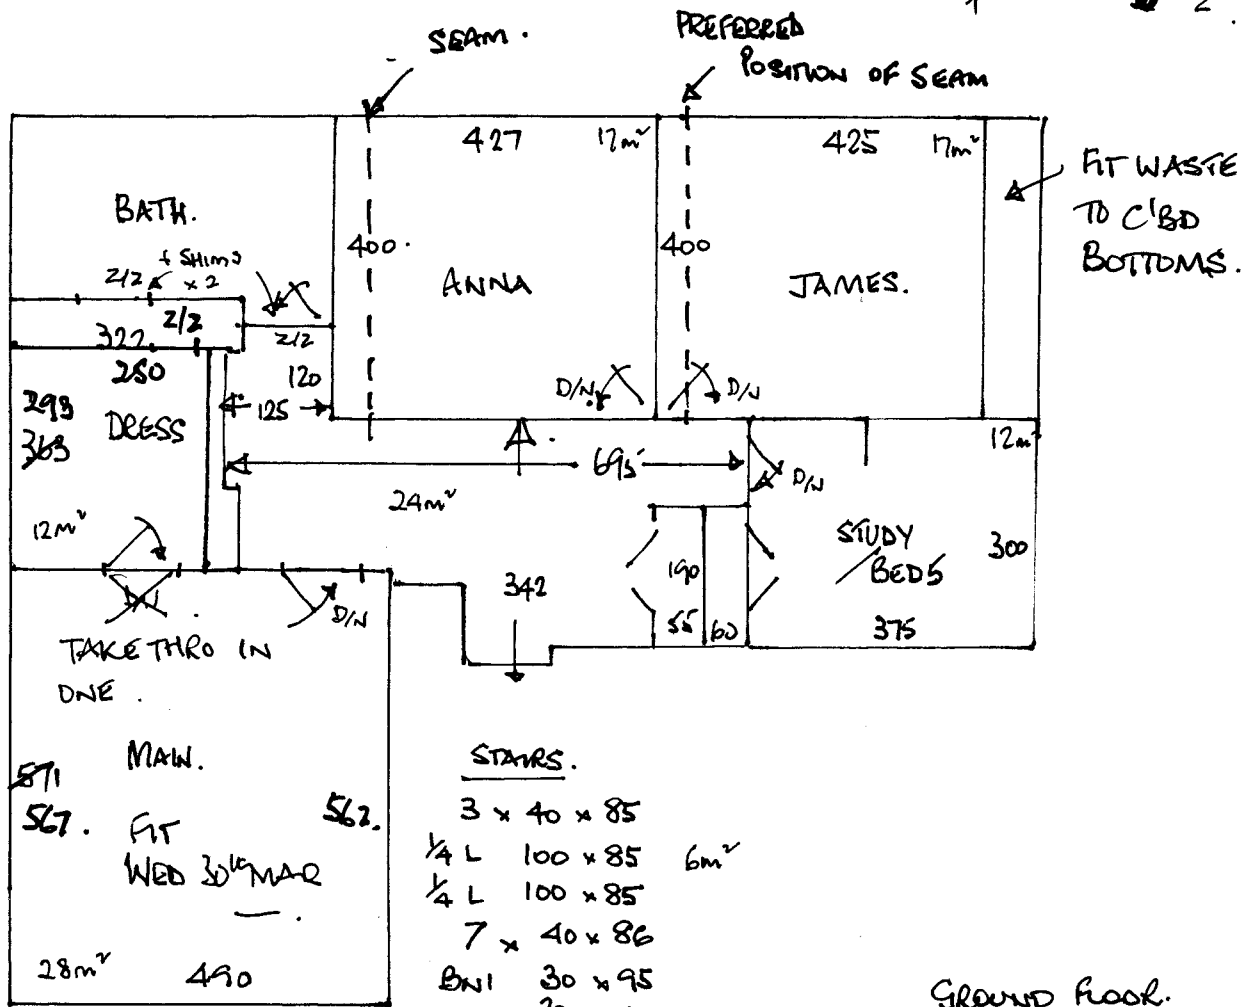 2
SEAM.
PREFERRED
POSITION OF SEAM
427
17m²
425
17m²
FIT WASTE
TO C'BD
BOTTOMS.
BATH.
400
ANNA
400
JAMES.
+ SHIMS
x 2
2/2
2/2
2/2
322
250
293
363
DRESS
120
125
D/N
D/N
12m²
695
D/N
24m²
12m²
STUDY
/BED 5
300
190
55
60
375
342
D/N
D/N
TAKE THRO IN
ONE.
MAIN.
571
567.
562.
FIT
WED 30th MAR
28m²
490
STAIRS.
3 x 40 x 85
¼ L 100 x 85 6m²
¼ L 100 x 85
7 x 40 x 86
BN1 30 x 95
GROUND FLOOR.